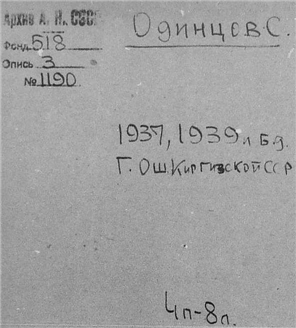 Архив А. Н. СССР
Фонд 518
Опись 3
№ 1190
Одинцев С.
1937, 1939, Б.д.
Г. Ош. Киргизской ССР
4п-8п.